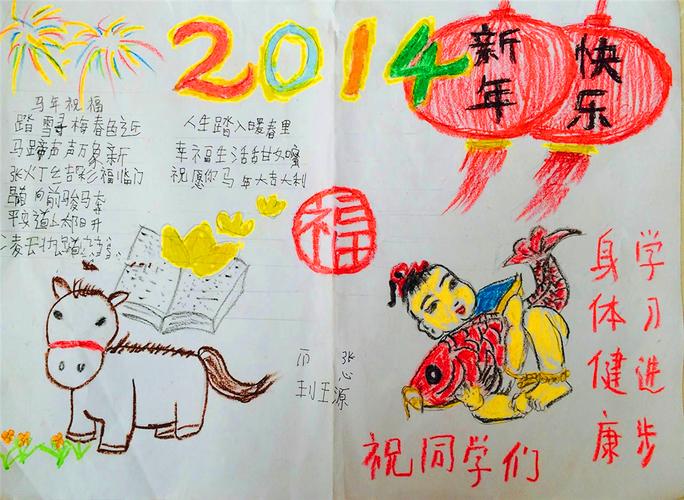 2014
新年
快乐
马年祝福
踏雪寻梅春已近
马蹄声声万象新
张灯结彩福临门
向前骏马奔
平安道上太阳升
凌云壮
人生踏入暖春里
幸福生活甜如蜜
祝愿你马年大吉大利
福
张心源
祝同学们
学习进步
身体健康